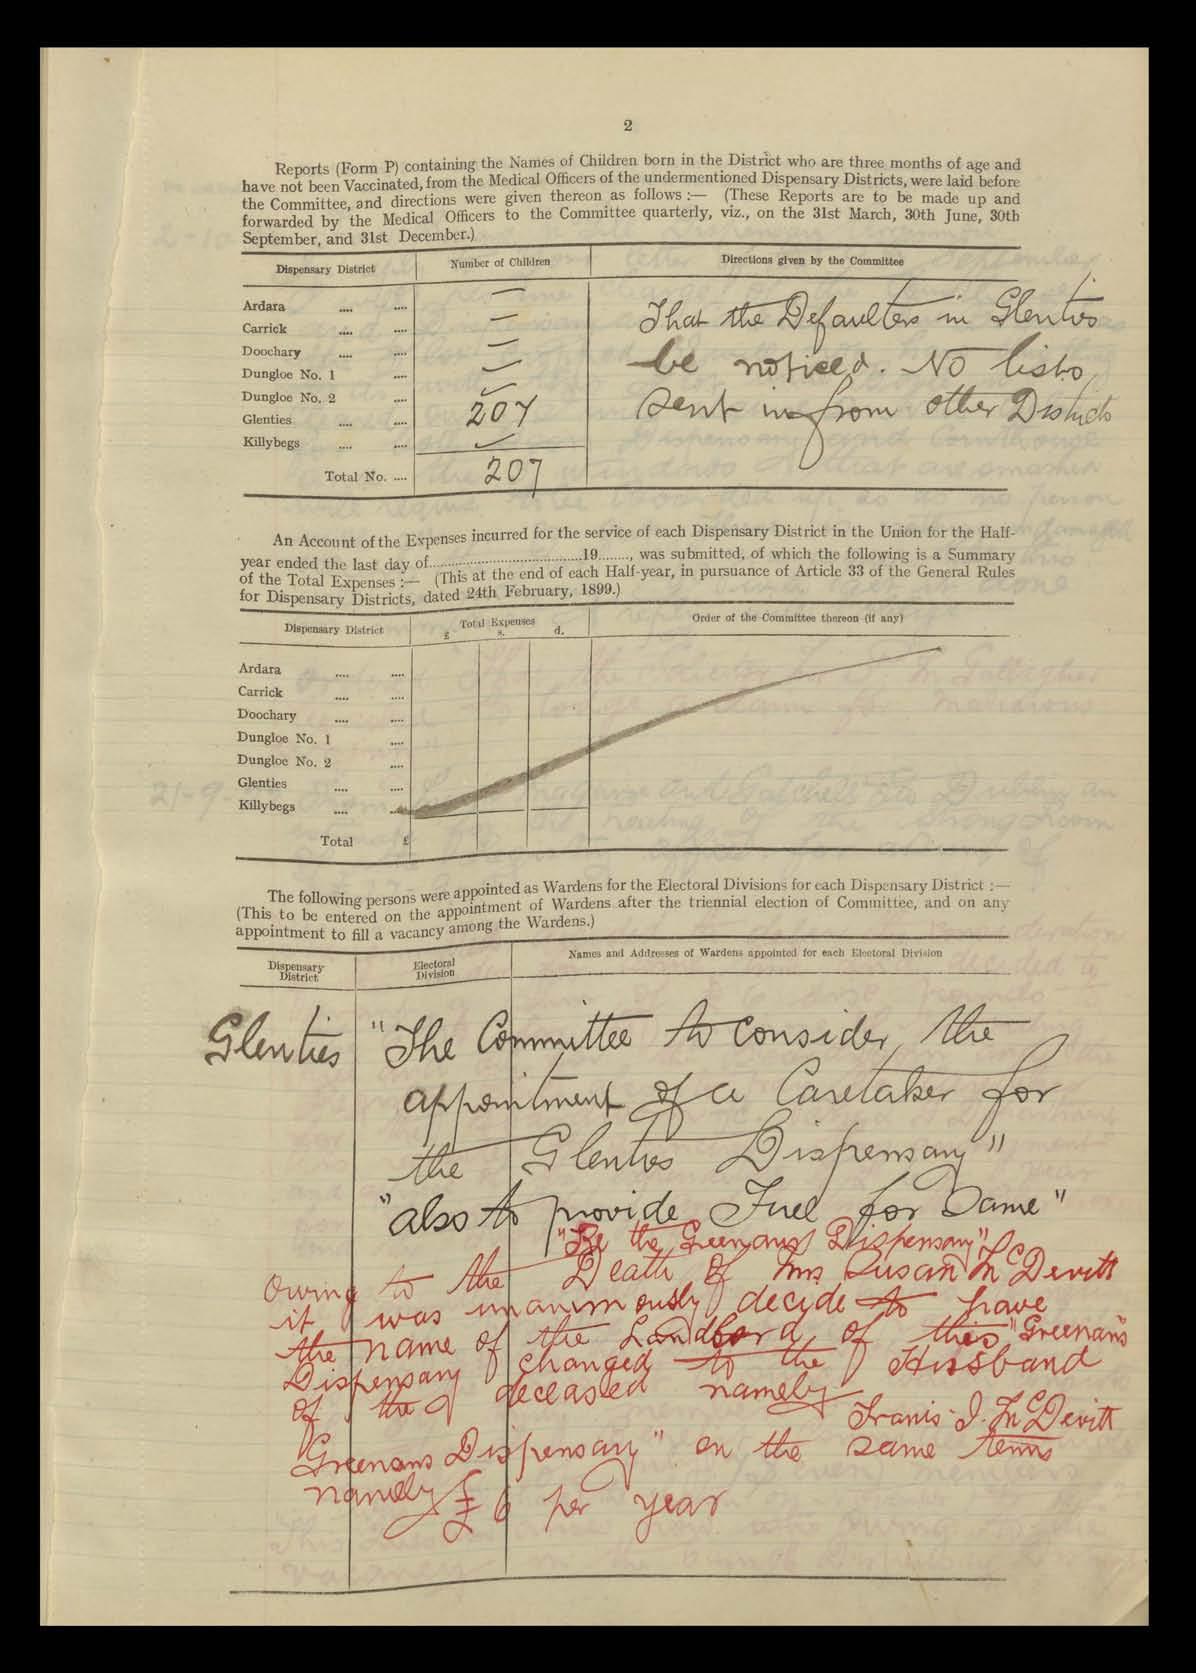 2
Reports (Form P) containing the Names of Children born in the District who are three months of age and
have not been Vaccinated, from the Medical Officers of the undermentioned Dispensary Districts, were laid before
the Committee, and directions were given thereon as follows :— (These Reports are to be made up and
forwarded by the Medical Officers to the Committee quarterly, viz., on the 31st March, 30th June, 30th
September, and 31st December.)
Dispensary District Number of Children Directions given by the Committee
Ardara .... .... — That the Defaulters in Glenties
Carrick .... .... —
Doochary .... .... — be noticed. No lists
Dungloe No. 1 .... —
Dungloe No. 2 .... — sent in from other Districts
Glenties .... .... 207
Killybegs .... .... —
Total No. .... 207
An Account of the Expenses incurred for the service of each Dispensary District in the Union for the Half-
year ended the last day of........................................19........, was submitted, of which the following is a Summary
of the Total Expenses :— (This at the end of each Half-year, in pursuance of Article 33 of the General Rules
for Dispensary Districts, dated 24th February, 1899.)
Dispensary District Total Expenses Order of the Committee thereon (if any)
£ s. d.
Ardara .... ....
Carrick .... ....
Doochary .... ....
Dungloe No. 1 ....
Dungloe No. 2 ....
Glenties .... ....
Killybegs .... ....
Total £
The following persons were appointed as Wardens for the Electoral Divisions for each Dispensary District :—
(This to be entered on the appointment of Wardens after the triennial election of Committee, and on any
appointment to fill a vacancy among the Wardens.)
Dispensary District Electoral Division Names and Addresses of Wardens appointed for each Electoral Division
Glenties "The Committee to consider the
appointment of a Caretaker for
the Glenties Dispensary"
"also to provide Fuel for Same"
"Re the Greenans Dispensary"
Owing to the Death of Mrs Susan McDevitt
it was unanimously decide to have
the name of the Landlord of this "Greenans
Dispensary changed to the Husband
of the deceased namely
Franis J. McDevitt
Greenans Dispensary" on the same terms
namely £6 per year